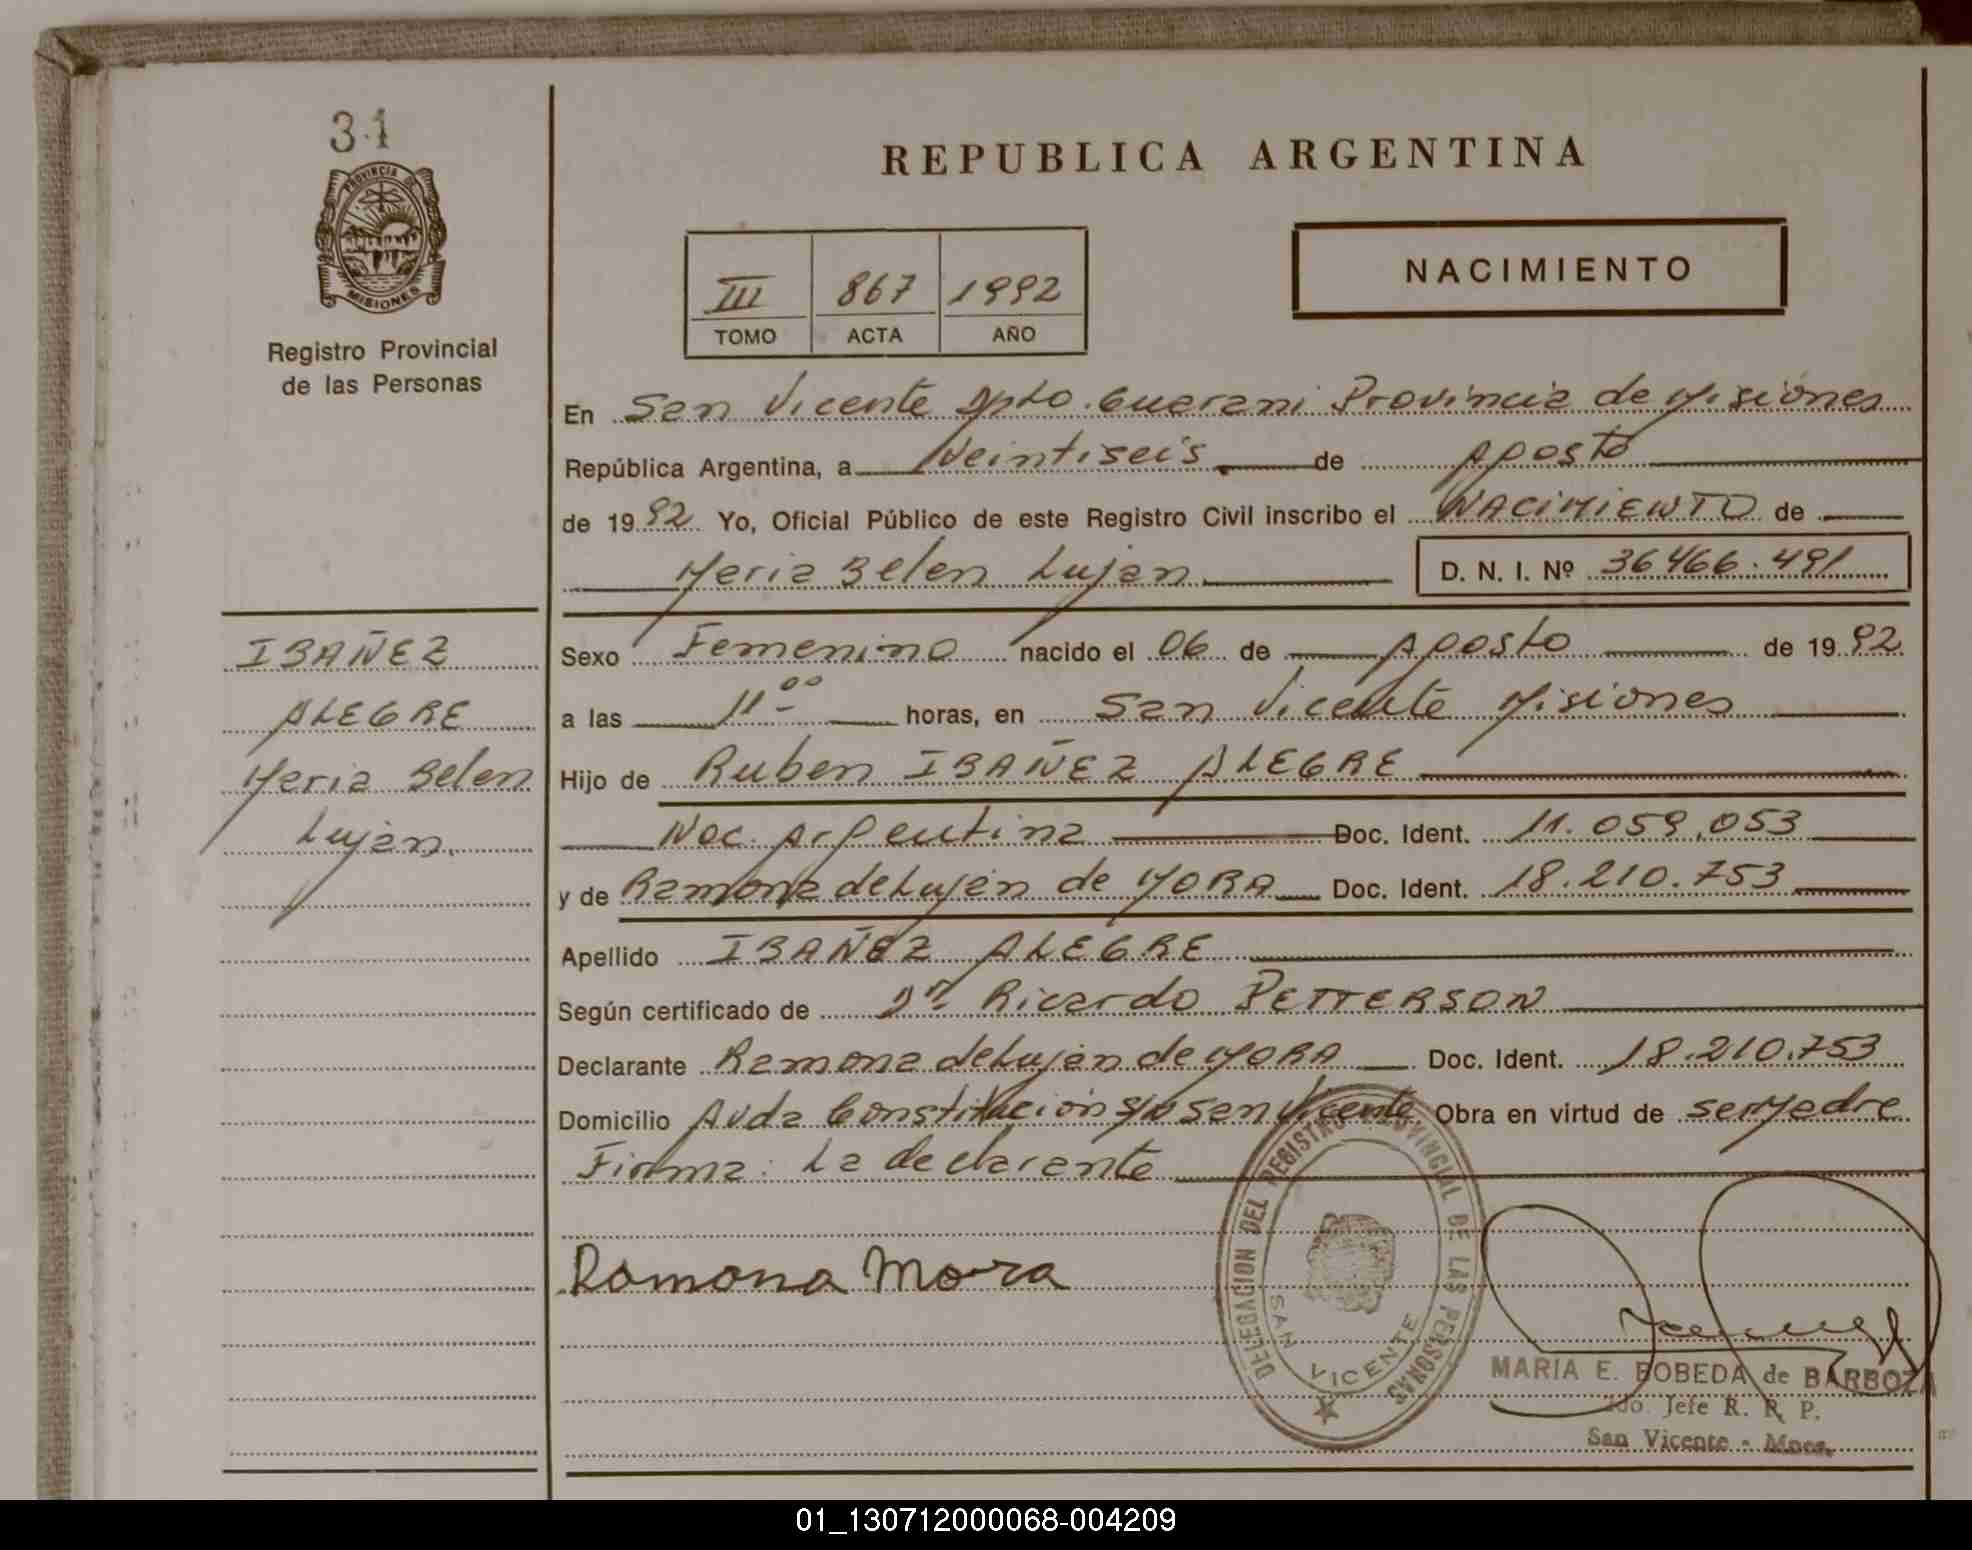 31
PROVINCIA DE
MISIONES
Registro Provincial
de las Personas
REPUBLICA ARGENTINA
III 867 1992
TOMO ACTA AÑO
NACIMIENTO
En San Vicente Dpto. Guarani Provincia de Misiones
República Argentina, a Veintiseis de Agosto
de 1992 Yo, Oficial Público de este Registro Civil inscribo el NACIMIENTO de
Maria Belen Lujan D. N. I. Nº 36466.491
IBAÑEZ
ALEGRE
Maria Belen
Luján.
Sexo Femenino nacido el 06 de Agosto de 1992
a las 11 00 horas, en San Vicente Misiones
Hijo de Ruben IBAÑEZ ALEGRE
Nac. Argentina Doc. Ident. 11.059.053
y de Ramona de Luján de MORA Doc. Ident. 18.210.753
Apellido IBAÑEZ ALEGRE
Según certificado de Dr. Ricardo PETTERSON
Declarante Ramona de Luján de MORA Doc. Ident. 18.210.753
Domicilio Avda Constitucion S/N San Vicente Obra en virtud de ser Madre
Firma: La declarante
Ramona Mora
DELEGACION DEL REGISTRO PROVINCIAL DE LAS PERSONAS
SAN VICENTE
MARIA E. BOBEDA de BARBOZA
2do. Jefe R. P. P.
San Vicente - Mnes.
01_130712000068-004209